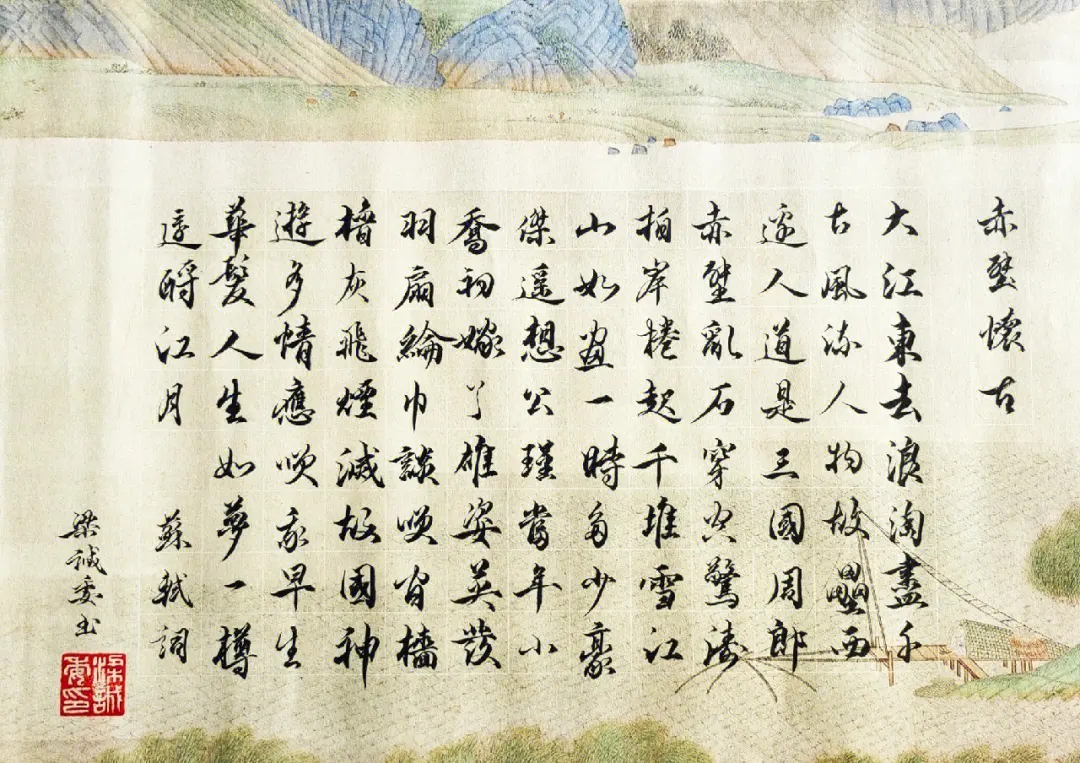 赤壁懷古
大江東去浪淘盡千
古風流人物故壘西
邊人道是三國周郎
赤壁亂石穿空驚濤
拍岸捲起千堆雪江
山如畫一時多少豪
傑遙想公瑾當年小
喬初嫁了雄姿英發
羽扇綸巾談笑間檣
櫓灰飛煙滅故國神
遊多情應笑我早生
華髮人生如夢一樽
還酹江月 蘇軾詞
梁誠委書
梁誠委印